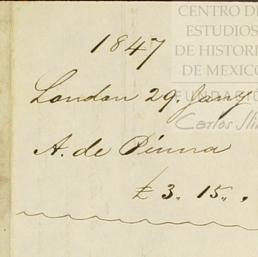 CENTRO DE
ESTUDIOS
DE HISTORI
DE MEXICO
FUNDACIÓ
Carlos Sli
1847
London 29. Jany
A. de Pinna
£ 3. 15. ,